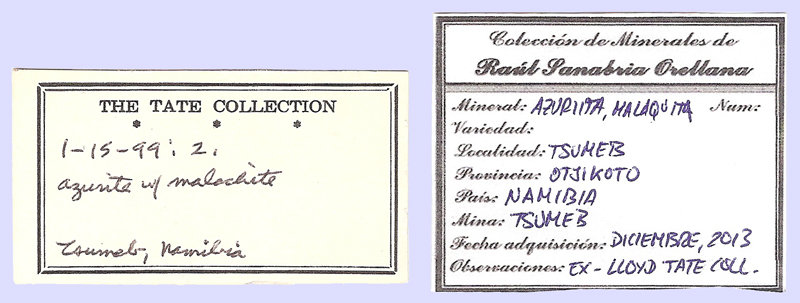 THE TATE COLLECTION
* * *
1-15-99: 2.
azurite w/ malachite
Tsumeb, Namibia
Colección de Minerales de
Raúl Sanabria Orellana
Mineral: AZURITA, MALAQUITA Num:
Variedad:
Localidad: TSUMEB
Provincia: OTJIKOTO
País: NAMIBIA
Mina: TSUMEB
Fecha adquisición: DICIEMBRE, 2013
Observaciones: EX-LLOYD TATE COLL.